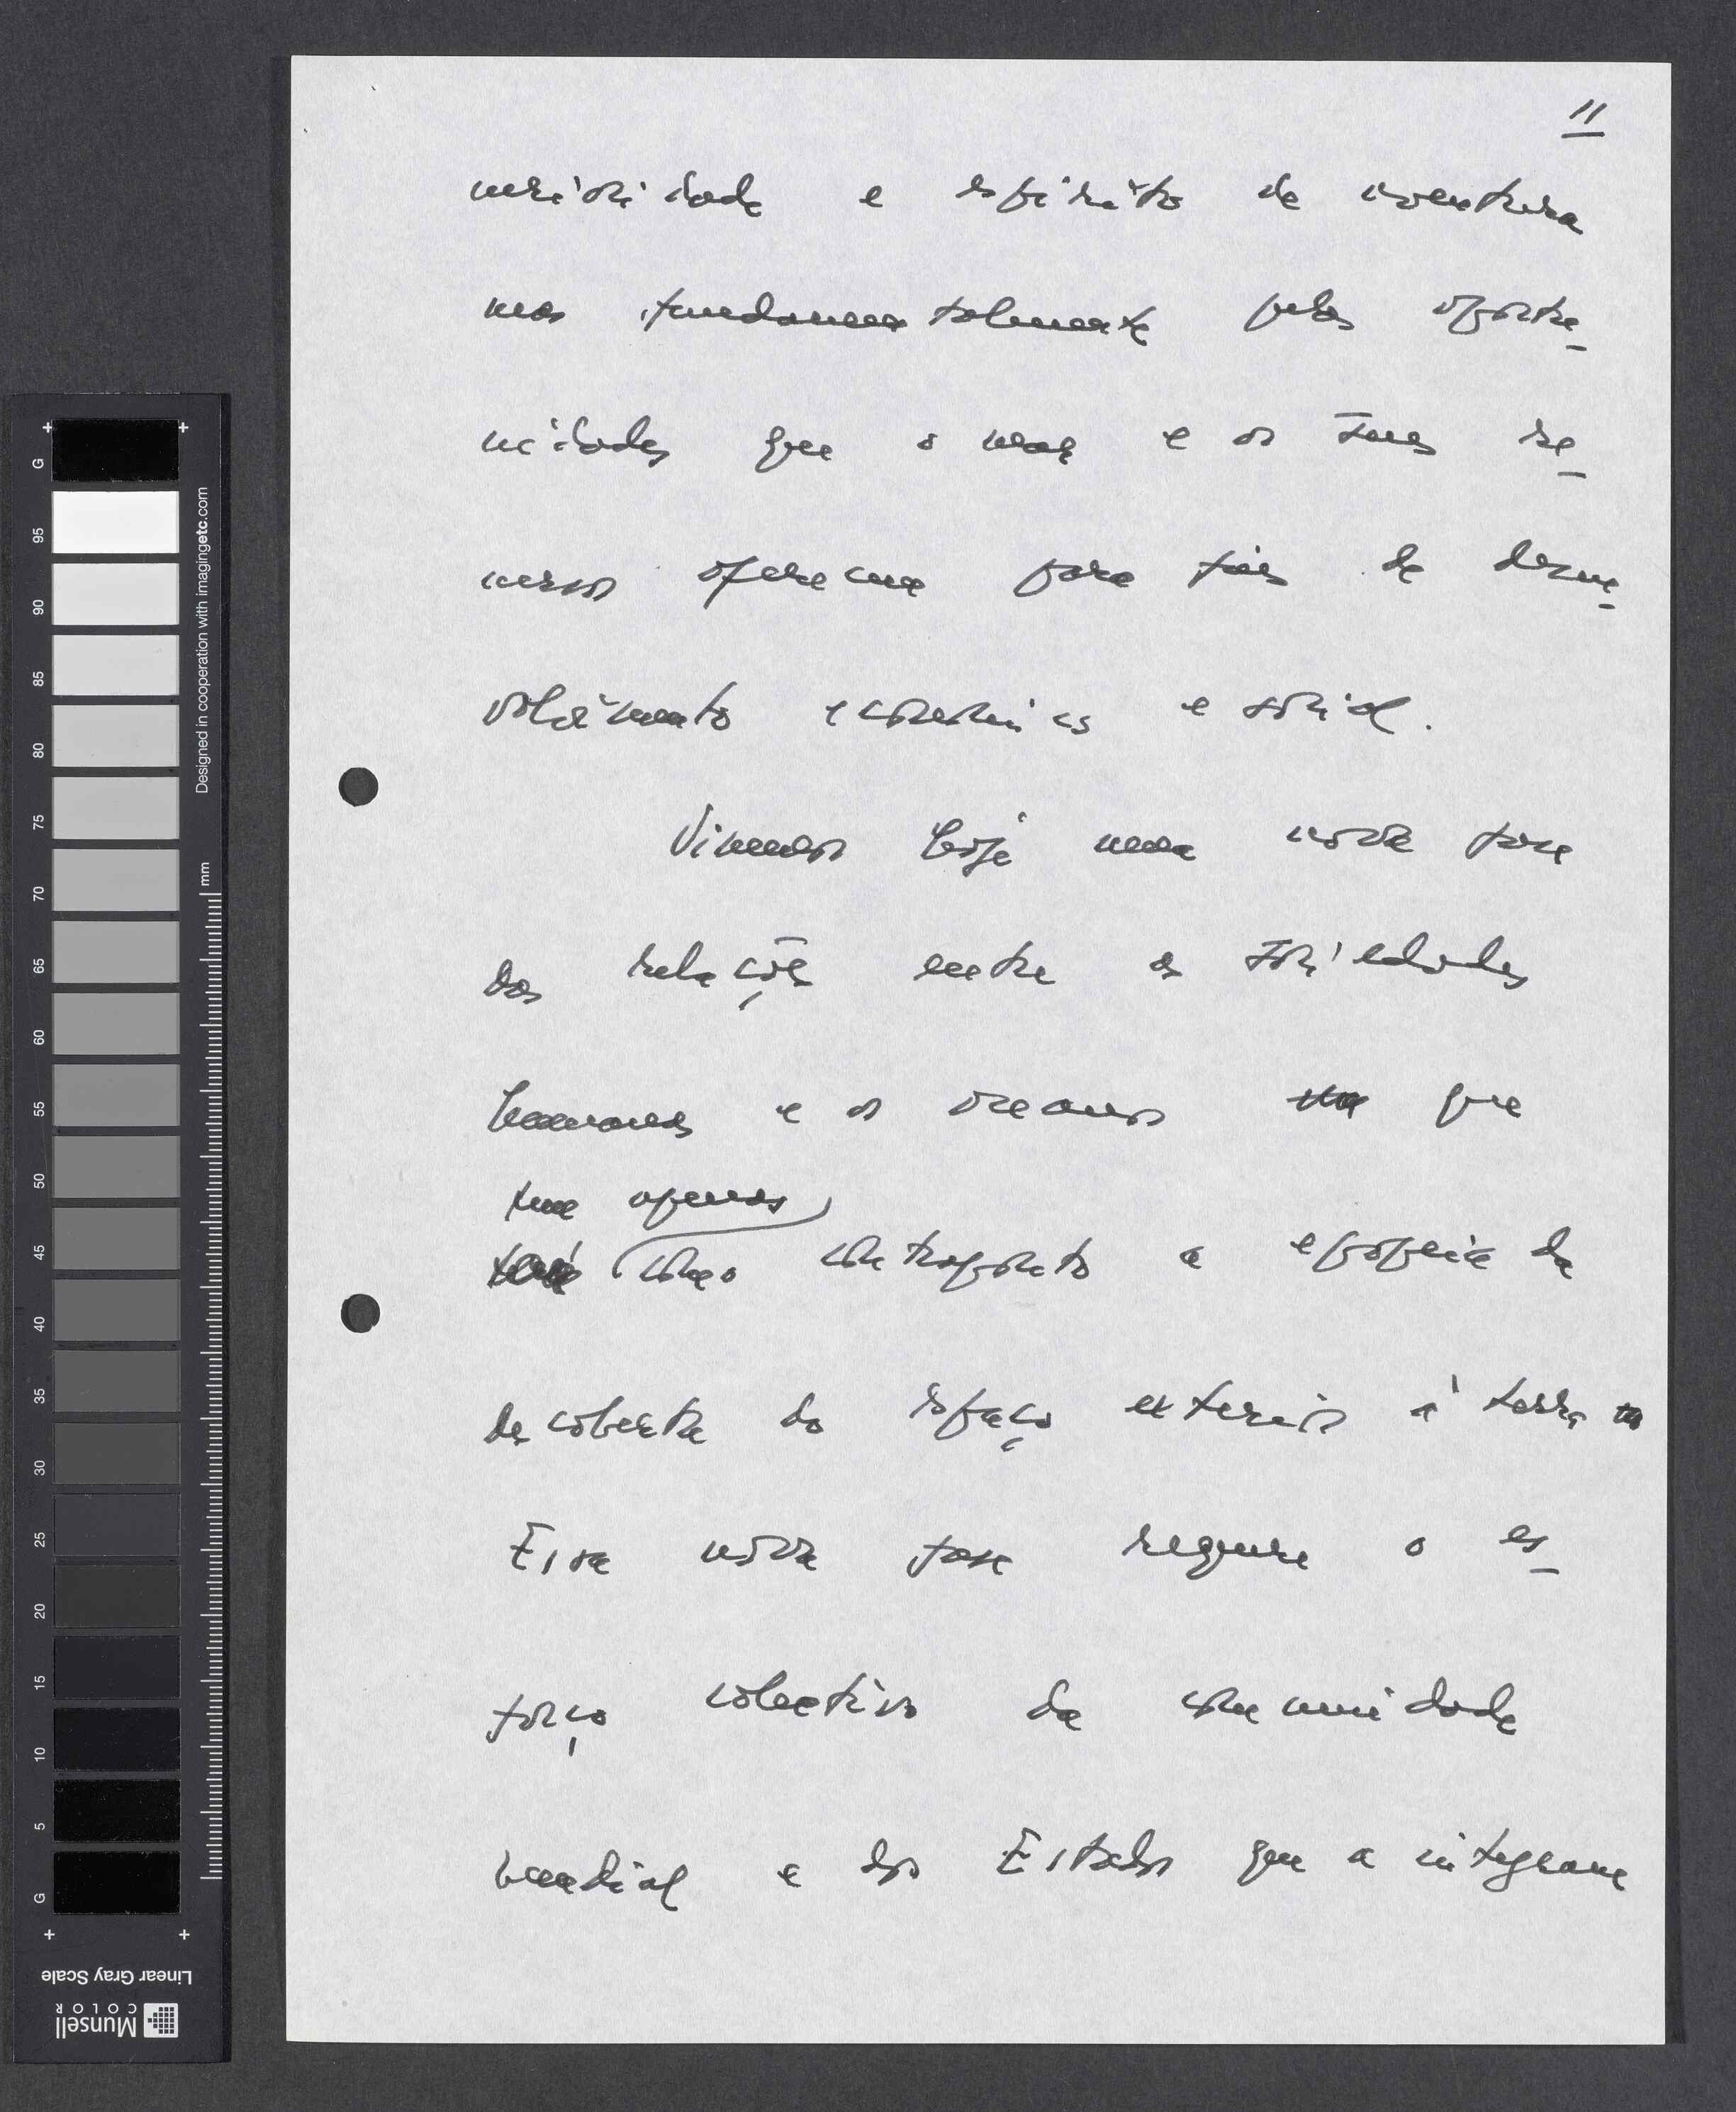 11
curiosidade e espírito de aventura
mas fundamentalmente pelas oportu-
nidades que o mar e os seus re-
cursos oferecem para fins de desen-
volvimento económico e social.
Vivemos hoje uma nova fase
das relações entre as sociedades
humanas e os oceanos que
tem apenas
como contraponto a epopeia da
descoberta do espaço exterior à terra
Essa nova fase requere o es-
forço colectivo da comunidade
mundial e dos Estados que a integram
G
95
90
85
80
75
70
65
60
55
50
45
40
35
30
25
20
15
10
5
G
mm
Designed in cooperation with imagingetc.com
Linear Gray Scale
Munsell
COLOR